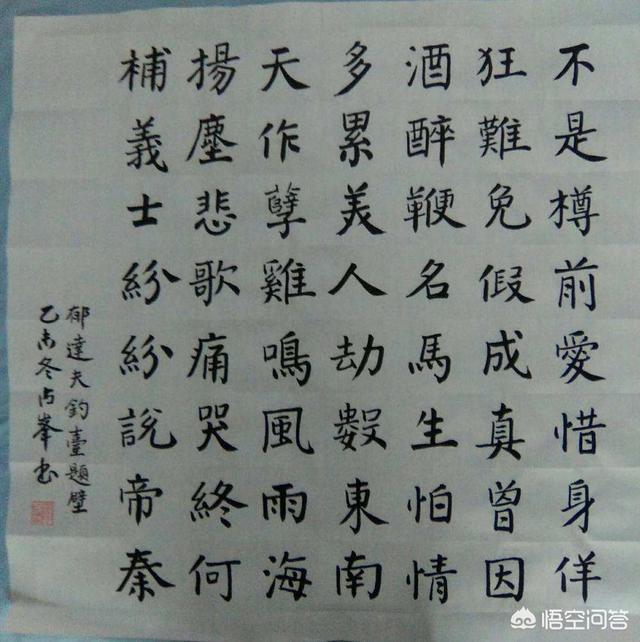 不是樽前愛惜身佯
狂難免假成真曾因
酒醉鞭名馬生怕情
多累美人劫數東南
天作孽雞鳴風雨海
揚塵悲歌痛哭終何
補義士紛紛說帝秦
郁達夫釣臺題壁
乙未冬占峯書
悟空问答